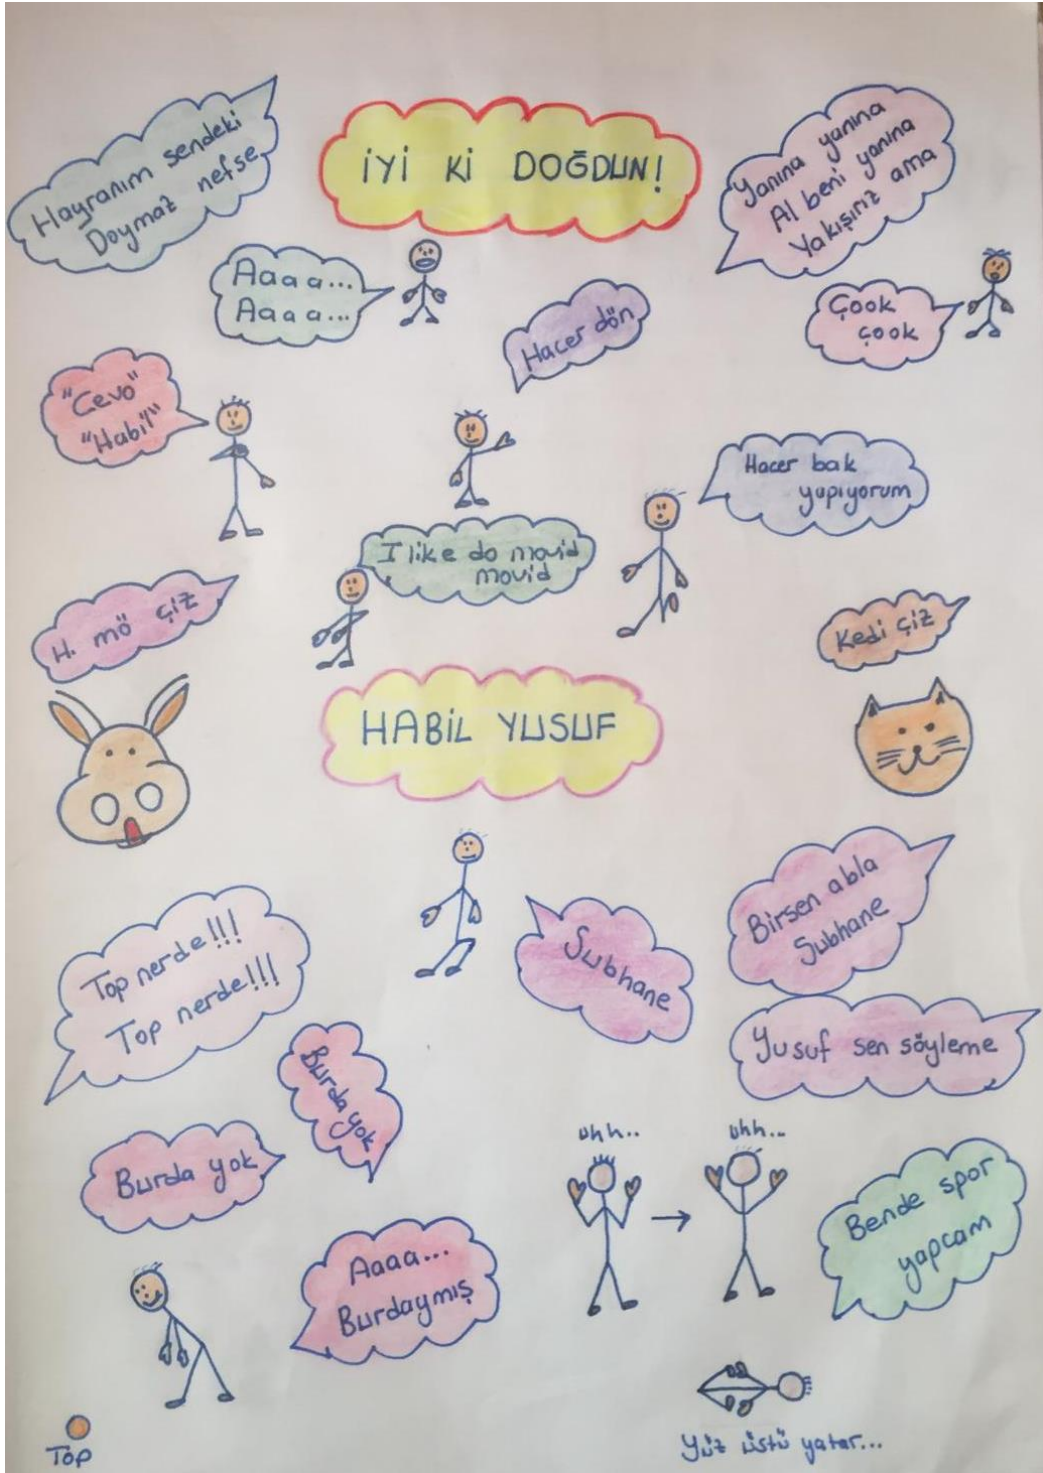 Hayranım sendeki
Doymaz nefse
İYİ Kİ DOĞDUN!
Yanına yanına
Al beni yanına
Yakışırız ama
Aaaa...
Aaaa...
Hacer dön
Çook
çook
"Cevo"
"Habil"
Hacer bak
yapıyorum
I like do movid
movid
H. mö çiz
Kedi çiz
HABİL YUSUF
Birsen abla
Subhane
Subhane
Top nerde!!!
Top nerde!!!
Yusuf sen söyleme
Burda yok
Burda yok
uhh..
uhh...
Bende spor
yapcam
Aaaa...
Burdaymış
Top
Yüz üstü yatar...